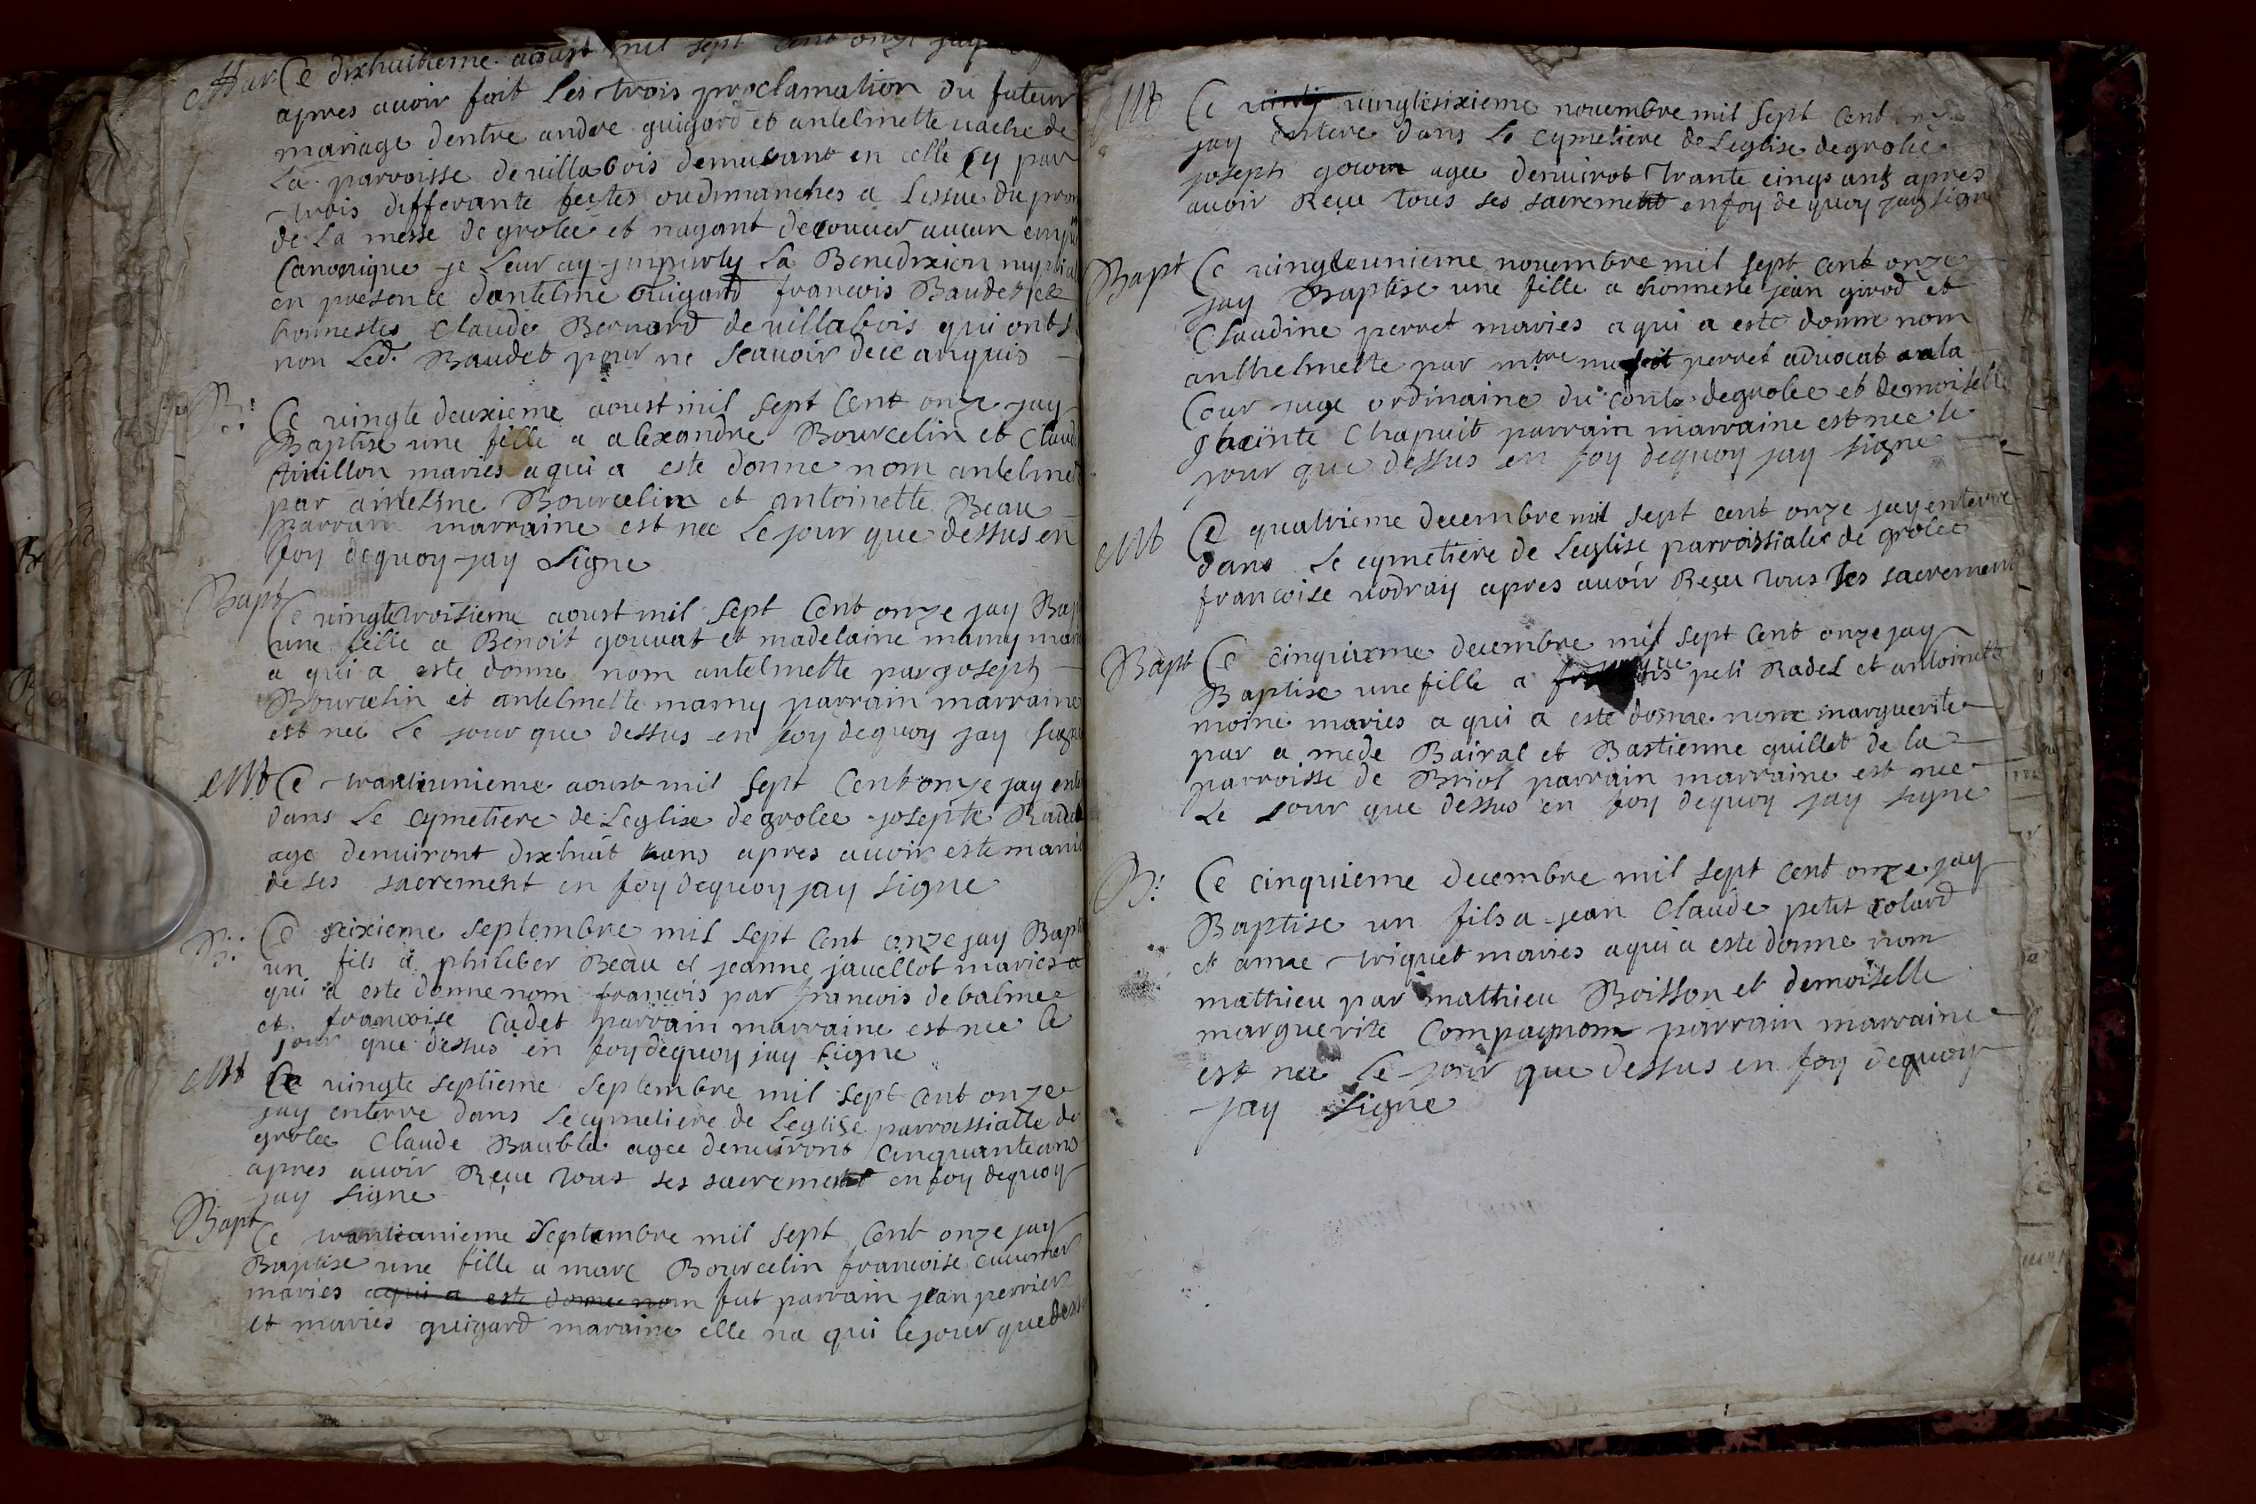 Mar Ce dixhuitieme aoust mil sept cent onze jay
apres avoir fait les trois proclamation du futeur
mariage dentre andre guigard et antelmette vache de
la parroisse de villabois demurant en celle cy par
trois differante festes ou dimanches a lissue du pron
de la messe de grolee et nayant decouver aucun empe
canonique je leur ay imparty la Benedixion nuptial
en presence dantelme Guigard francois Baudet et
honnestes Claude Bernard de villabois qui ont s
non led. Baudet pour ne scavoir de ce anquis
B: Ce vingte deuxieme aoust mil sept cent onze jay
Baptise une fille a alexandre Bourcelin et Claud
truillon maries a qui a este donne nom antelmet
par antelme Bourcelin et antoinette Beau
parrain marraine est nee le jour que dessus en
foy dequoy jay signe
Bapt Ce vingtetroisieme aoust mil sept cent onze jay Bap
une fille a Benoit gouvat et madelaine mamy mari
a qui a este donne nom antelmette par joseph
Bourcelin et antelmette mamy parrain marraine
est nee le jour que dessus en foy dequoy jay signe
ent Ce trantiunieme aoust mil sept cent onze jay ente
dans le cymetiere de leglise de grolee josepte
age denviront dixhuit ans apres avoir este muni
de ses sacrement en foy dequoy jay signe
B: Ce seixieme septembre mil sept cent onze jay Bapti
un fils a philiber Beau et jeanne javellot maries a
qui a este donne nom francois par francois debalme
et francoise Cadet parrain marraine est nee le
jour que dessus en foy dequoy jay signe
ent Ce vingte septieme septembre mil sept cent onze
jay enterre dans le cymetiere de leglise parroissialle de
grolee Claude Baubla agee denviront cinquante ans
apres avoir Reçu tous ses sacrement en foy dequoy
jay signe
Bapt Ce trantiunieme septembre mil sept cent onze jay
Baptise une fille a marc Bourcelin francoise
maries a qui a este donne nom fut parrain jean perrier
et maries guigard maraine elle na qui le jour que dessu
ent Ce vingtesixieme novembre mil sept cent
jay entere dans le cymetiere de leglise de grolee
joseph agee denvirot trante cinqs ans apres
avoir Reçu tous ses sacrement en foy de quoy jay signe
Bapt Ce vingteunieme novembre mil sept cent onze
jay Baptise une fille a honneste jean girod et
Claudine perret maries a qui a este donne nom
anthelmette par mtre perret advocat a la
Cour juge ordinaire du conte de grolee et demoiselle
Chapuit parrain marraine est nee le
jour que dessus en foy dequoy jay signe
ent Ce quatrieme decembre mil sept cent onze jay enterre
dans le cymetiere de leglise parroissialle de grolee
francoise vodray apres avoir Reçu tous les sacrement
Bapt Ce cinquieme decembre mil sept cent onze jay
Baptise une fille a peti Radet et antoinette
moine maries a qui a este donne nom marguerite
par a mede Bairal et Bastienne guillet de la
parroisse de Briol parrain marraine est nee
le jour que dessus en foy dequoy jay signe
B: Ce cinquieme decembre mil sept cent onze jay
Baptise un fils a jean Claude petit colard
et anne triquet maries a qui a este donne nom
mathieu par mathieu Boisson et demoiselle
marguerite Compagnom parrain marraine
est nee le jour que dessus en foy dequoy
jay signe